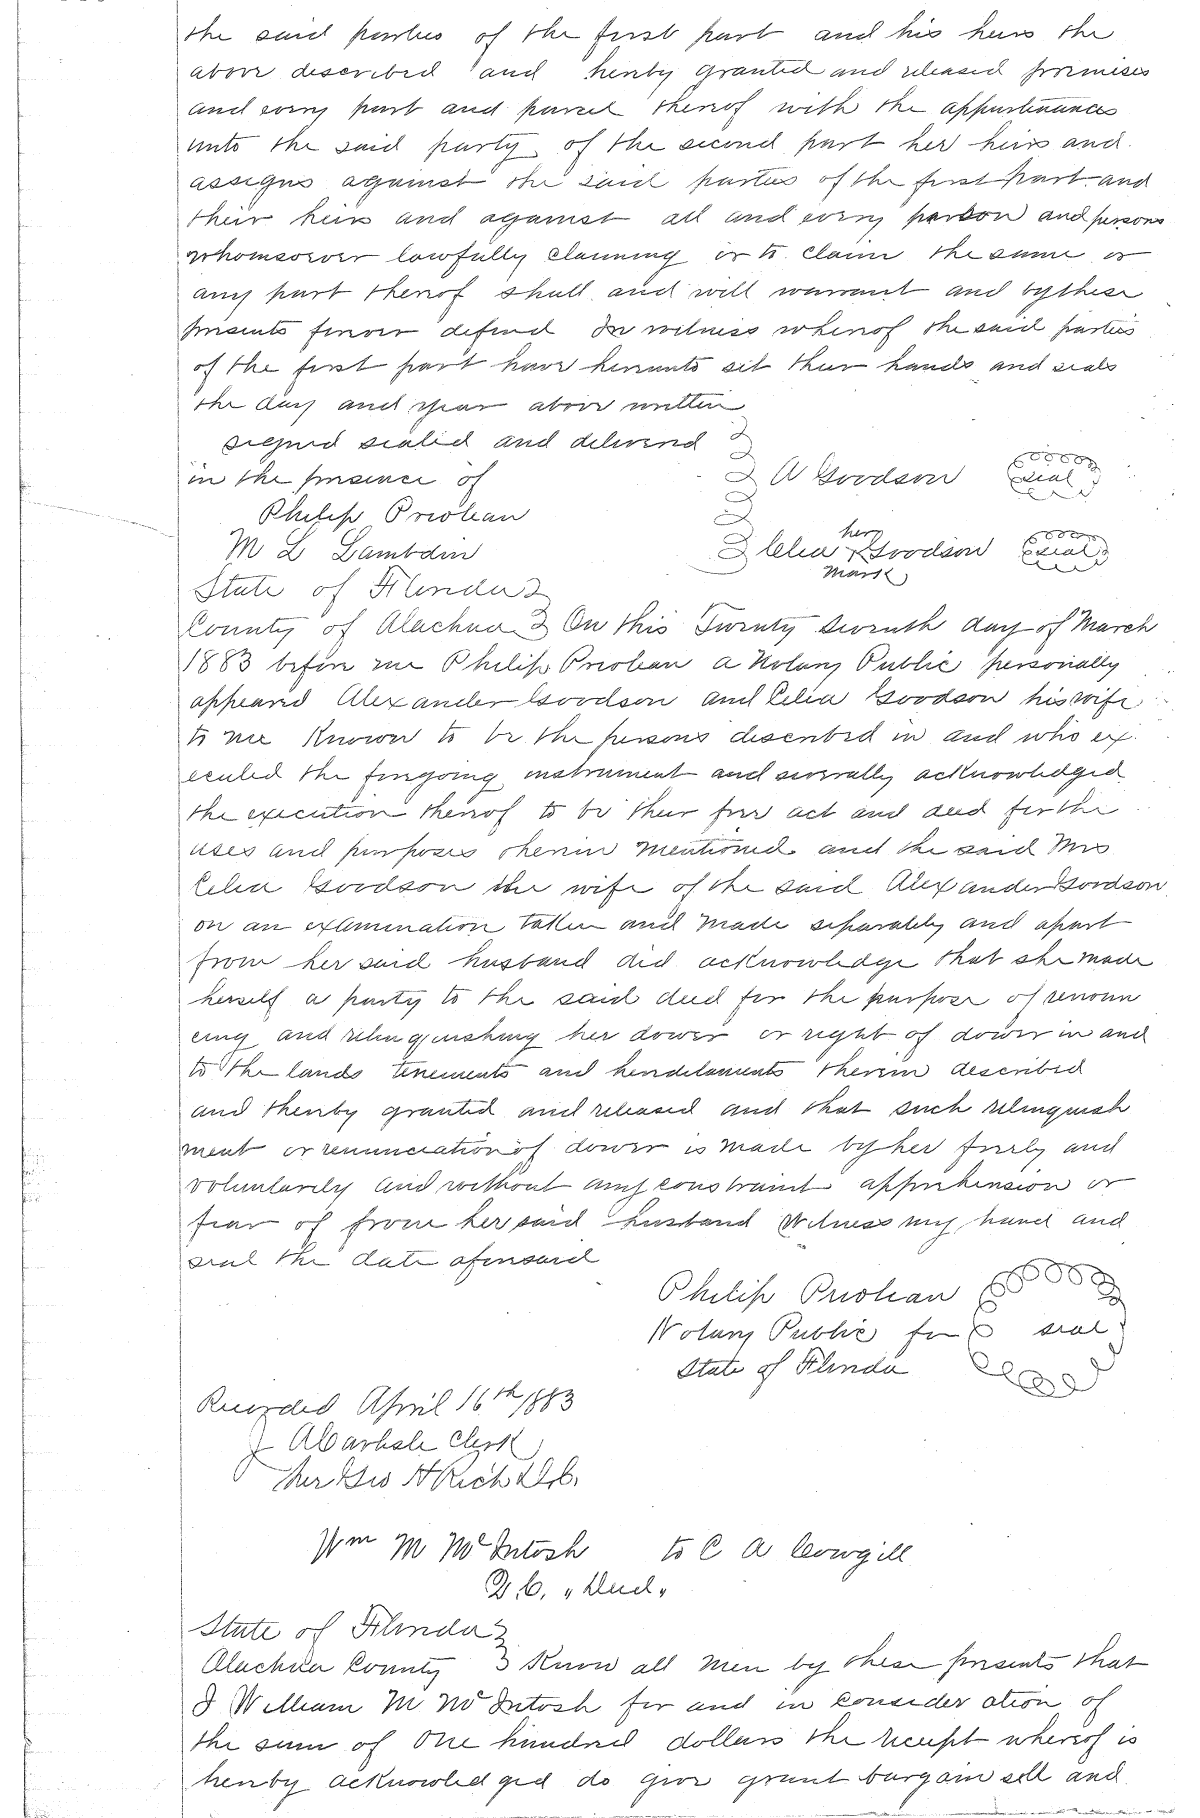 the said parties of the first part and his heirs the
above described and hereby granted and released premises
and every part and parcel thereof with the appurtenances
unto the said party of the second part her heirs and
assigns against the said parties of the first part and
their heirs and against all and every person and persons
whomsoever lawfully claiming or to claim the same or
any part thereof shall and will warrant and by these
presents forever defend In witness whereof the said parties
of the first part have hereunto set their hands and seals
the day and year above written
signed sealed and delivered
in the presence of A Goodson seal
Philip Prioleau
her
M L Lambdin Celia x Goodson seal
mark
State of Florida
County of Alachua On this Twenty Seventh day of March
1883 before me Philip Prioleau a Notary Public personally
appeared Alexander Goodson and Celia Goodson his wife
to me Known to be the persons described in and who ex
ecuted the foregoing instrument and severally acknowledged
the execution thereof to be their free act and deed for the
uses and purposes therein mentioned and the said Mrs
Celia Goodson the wife of the said Alexander Goodson
on an examination taken and made separately and apart
from her said husband did acknowledge that she made
herself a party to the said deed for the purpose of renoun
cing and relinquishing her dower or right of dower in and
to the lands tenements and hereditaments therein described
and thereby granted and released and that such relinquish
ment or renunciation of dower is made by her freely and
voluntarily and without any constraint apprehension or
fear of from her said husband Witness my hand and
seal the date aforesaid
Philip Prioleau
Notary Public for seal
State of Florida
Recorded April 16th 1883
J A Carlisle Clerk
Per Geo H Rich D.C.
Wm M McIntosh to C A Cowgill
Q.C. "Deed"
State of Florida
Alachua County Know all men by these presents that
I William M McIntosh for and in consider ation of
the sum of One hundred dollars the receipt whereof is
hereby acknowledged do give grant bargain sell and